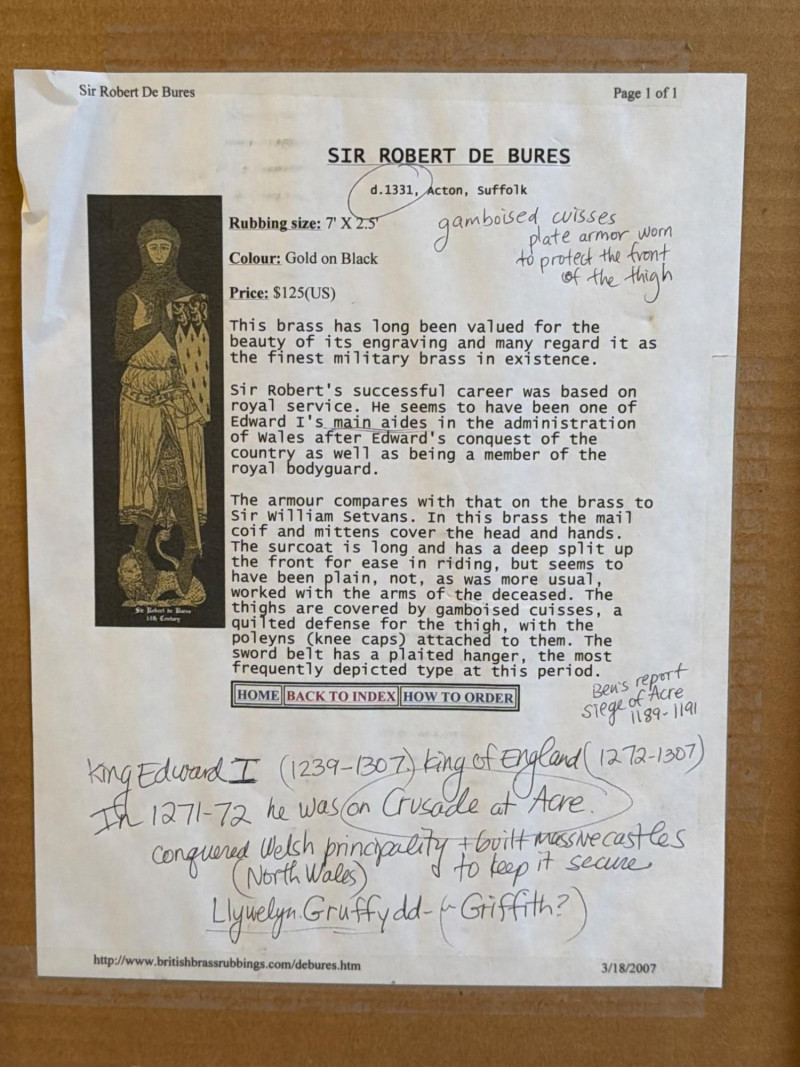 Sir Robert De Bures
Page 1 of 1
SIR ROBERT DE BURES
d.1331, Acton, Suffolk
Rubbing size: 7' X 2.5'
Colour: Gold on Black
Price: $125(US)
gamboised cuisses
plate armor worn
to protect the front
of the thigh
This brass has long been valued for the
beauty of its engraving and many regard it as
the finest military brass in existence.
Sir Robert's successful career was based on
royal service. He seems to have been one of
Edward I's main aides in the administration
of Wales after Edward's conquest of the
country as well as being a member of the
royal bodyguard.
The armour compares with that on the brass to
Sir William Setvans. In this brass the mail
coif and mittens cover the head and hands.
The surcoat is long and has a deep split up
the front for ease in riding, but seems to
have been plain, not, as was more usual,
worked with the arms of the deceased. The
thighs are covered by gamboised cuisses, a
quilted defense for the thigh, with the
poleyns (knee caps) attached to them. The
sword belt has a plaited hanger, the most
frequently depicted type at this period.
Sir Robert de Bures
Century
HOME BACK TO INDEX HOW TO ORDER
Ben's report
siege of Acre
1189-1191
King Edward I (1239-1307) King of England (1272-1307)
In 1271-72 he was on Crusade at Acre.
conquered Welsh principality + built massive castles
(North Wales) to keep it secure
Llywelyn Gruffydd - (~ Griffith?)
http://www.britishbrassrubbings.com/debures.htm
3/18/2007